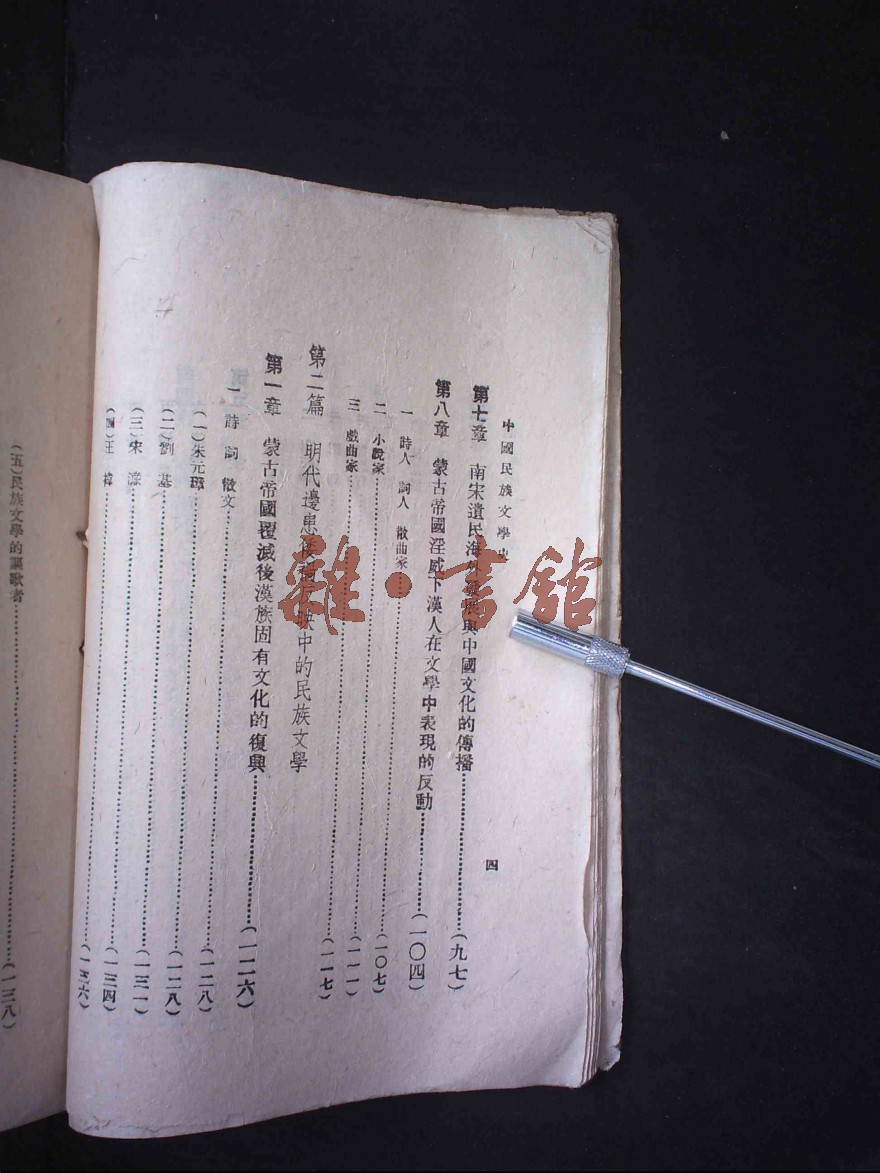 中國民族文學史 四
第七章 南宋遺民海外發展與中國文化的傳播……(九七)
第八章 蒙古帝國淫威下漢人在文學中表現的反動……(一〇四)
一 詩人 詞人 散曲家……(一〇七)
二 小說家……(一一一)
三 戲曲家……(一一七)
第二篇 明代邊患倭禍反映中的民族文學
第一章 蒙古帝國覆滅後漢族固有文化的復興……(一二六)
一 詩 詞 散文……(一二八)
(一)朱元璋……(一二八)
(二)劉基……(一三一)
(三)宋濂……(一三四)
(四)王褘……(一三六)
(五)民族文學的謳歌者……(一三八)
雜·書館